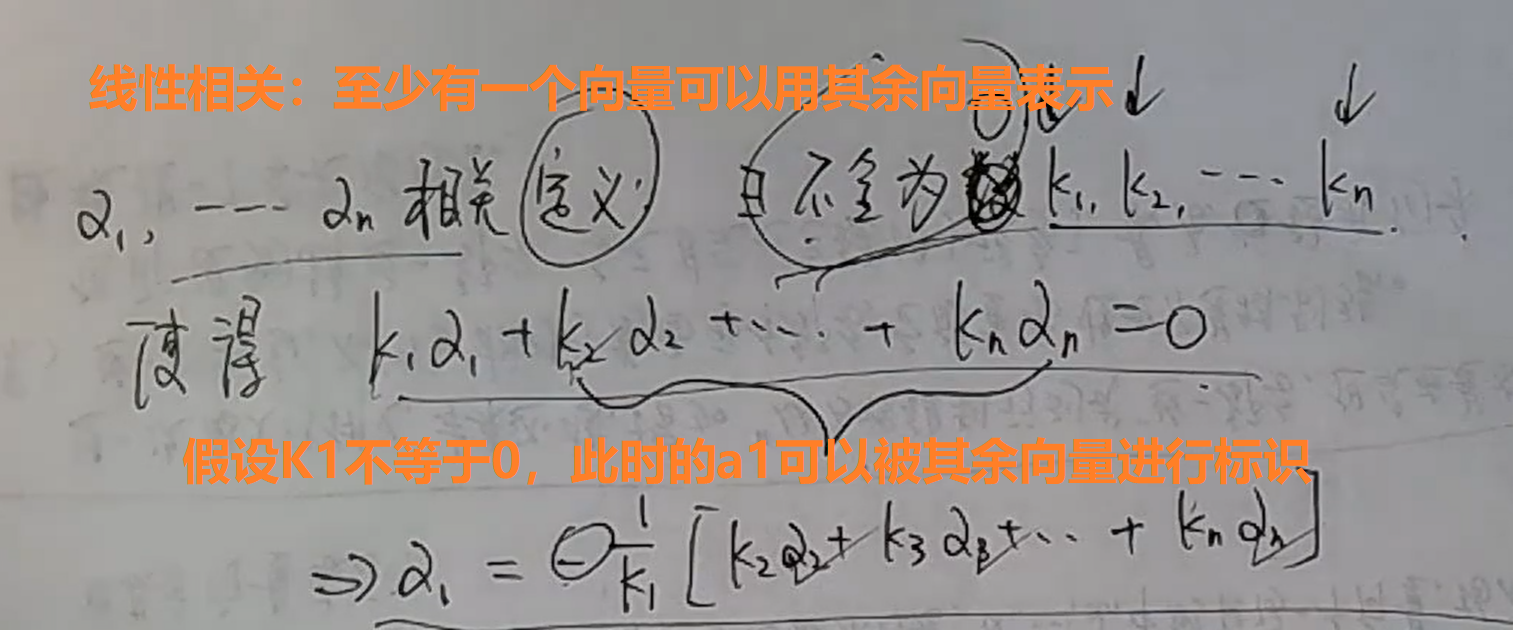 线性相关：至少有一个向量可以用其余向量表示
α₁, ---- αₙ 相关 定义 ∃ 不全为 0 k₁, k₂, ---- kₙ
使得 k₁α₁ + k₂α₂ + ··· + kₙαₙ = 0
假设K1不等于0，此时的a1可以被其余向量进行标识
⇒ α₁ = -1/k₁ [k₂α₂ + k₃α₃ + ··· + kₙαₙ]